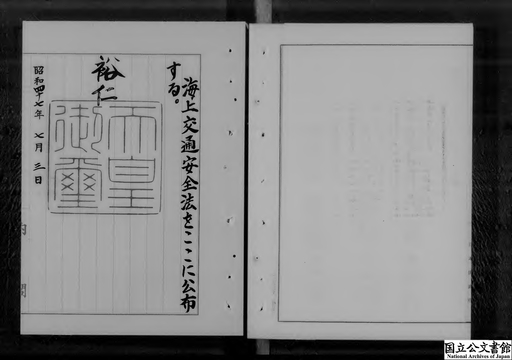 海上交通安全法をここに公布
する。
裕仁
天皇
御璽
昭和四十七年 七月 三日
内 閣
国立公文書館
National Archives of Japan